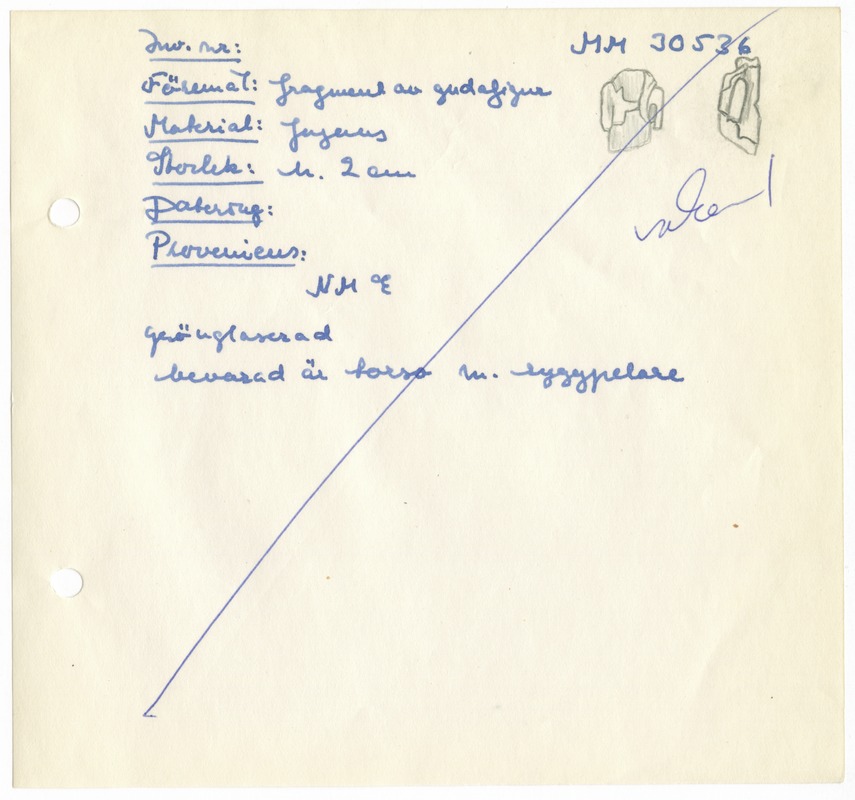 Inv. nr: MM 30536
Föremål: fragment av gudafigur
Material: fayens
Storlek: h. 2 cm
Datering:
Proveniens:
NM E
grönglaserad
bevarad är torso m. ryggpelare